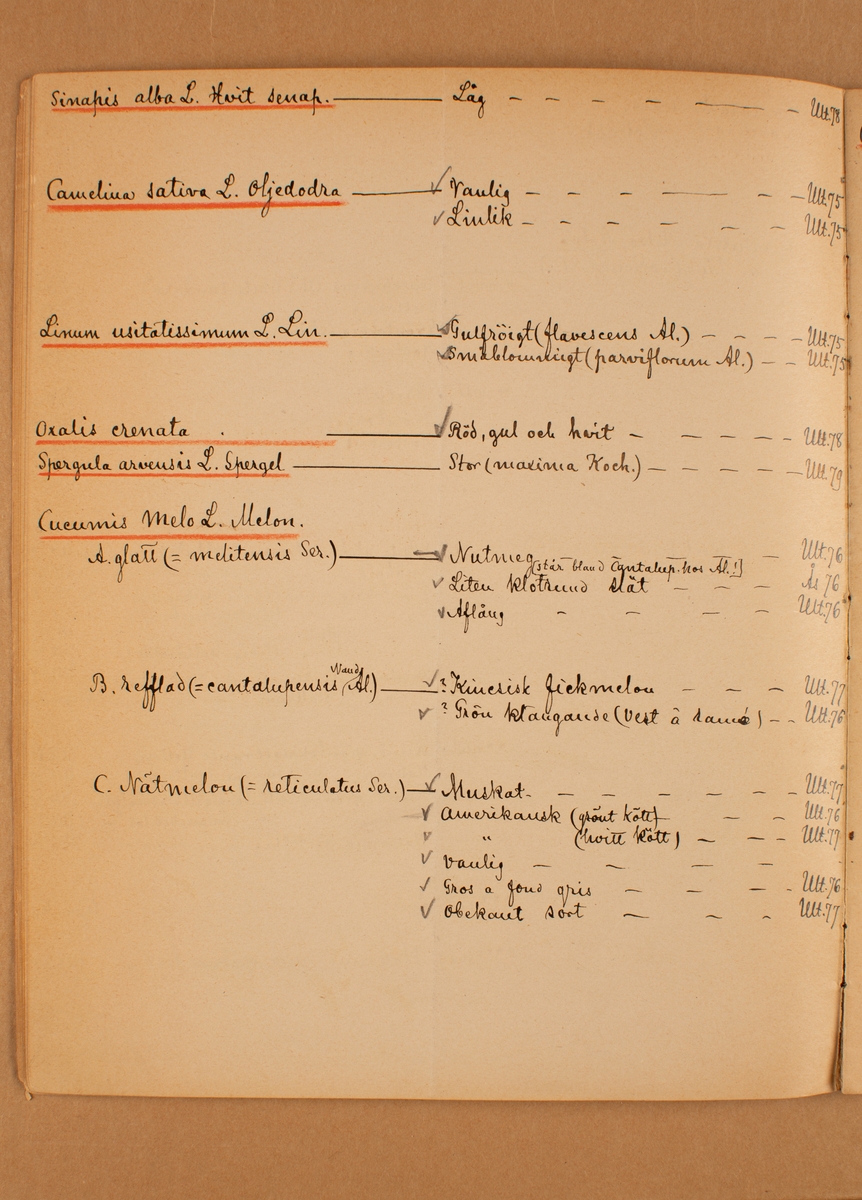 Sinapis alba L. Hvit senap. Låg Utt. 78
Camelina sativa L. Oljedodra Vanlig Utt. 75
Linlik Utt. 75
Linum usitatissimum L. Lin. Gulfröigt (flavescens Al.) Utt. 75
Småblommigt (parviflorum Al.) Utt. 75
Oxalis crenata Röd, gul och hvit Utt. 78
Spergula arvensis L. Spergel Stor (maxima Koch.) Utt. 79
Cucumis Melo L. Melon.
A. glatt (= melitensis Ser.) Nutmeg [står bland Cantalup. hos Al.!] Utt. 76
Liten klotrund slät Ås 76
Aflång Utt. 76
B. refflad (= cantalupensis Naud. Al.) ? Kinesisk fickmelon Utt. 77
? Grön (Vert à ramé) Utt. 76
C. Nätmelon (= reticulatus Ser.) Muskat Utt. 77
Amerikansk (grönt kött) Utt. 76
" (hvitt kött) Utt. 77
vanlig
Gros à fond gris Utt. 76
Obekant sort Utt. 77